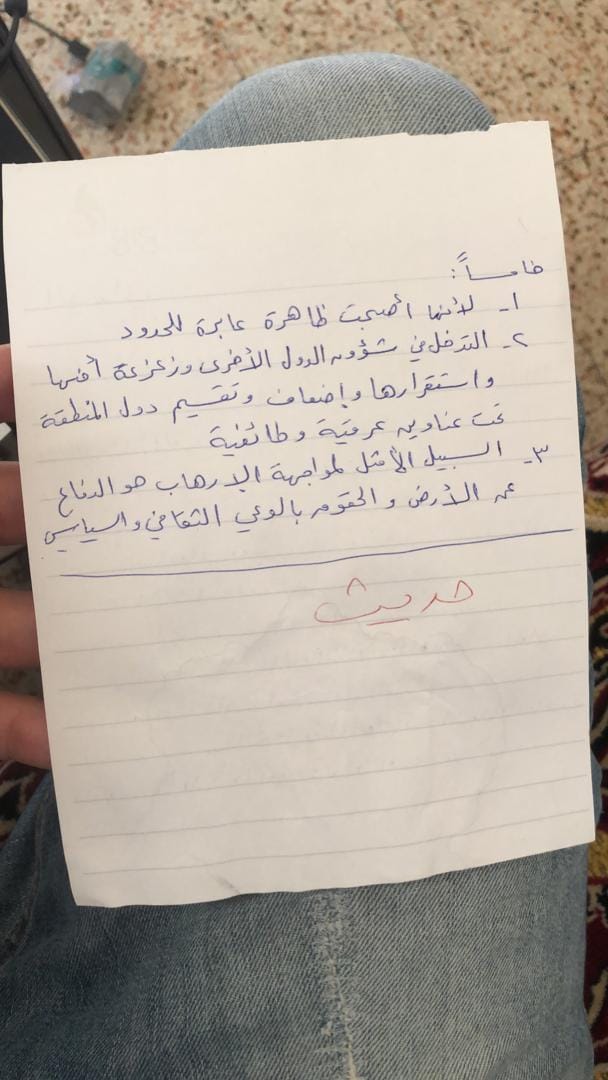 خامساً:
١- لأنها أصبحت ظاهرة عابرة للحدود
٢- التدخل في شؤون الدول الأخرى وزعزعة أمنها
واستقرارها وإضعاف وتقسيم دول المنطقة
تحت عناوين عرقية وطائفية
٣- السبيل الأمثل لمواجهة الإرهاب هو الدفاع
عن الأرض والحقوق بالوعي الثقافي والسياسي
حديث